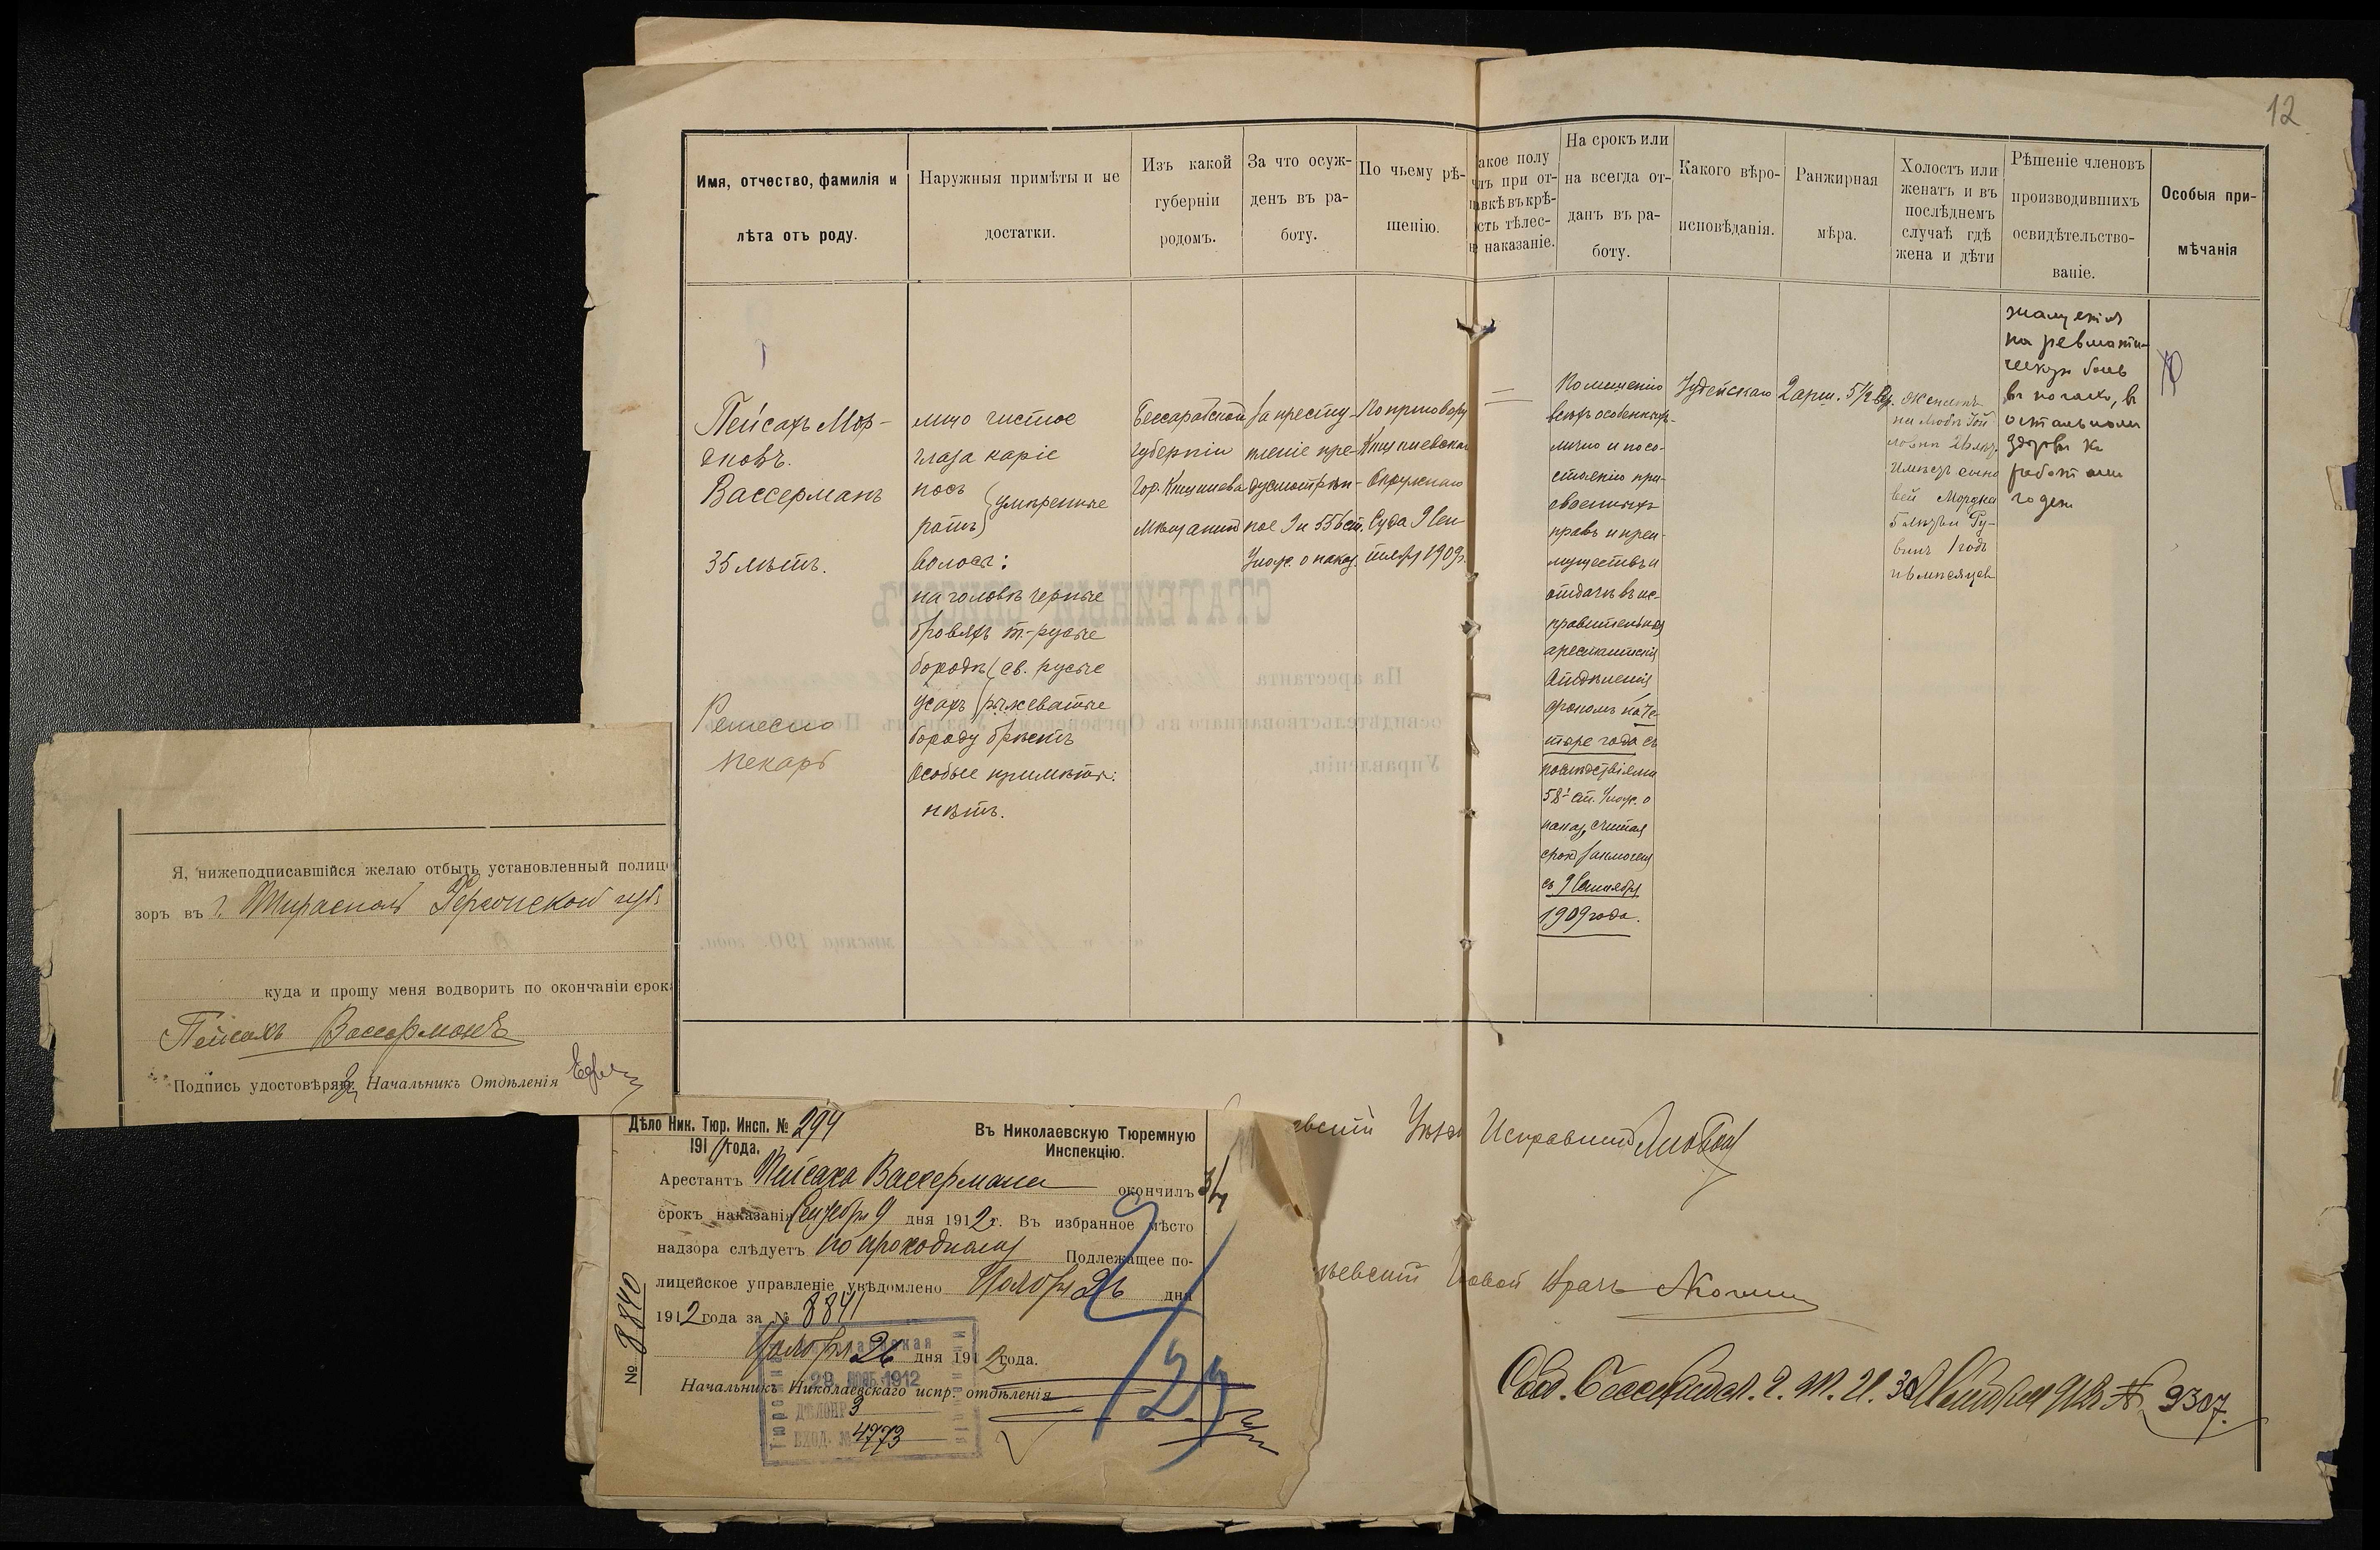 12
Имя, отчество, фамилія и
лѣта отъ роду.
Наружныя примѣты и не
достатки.
Изъ какой
губерніи
родомъ.
За что осуж-
денъ въ ра-
боту.
По чьему рѣ-
шенію.
акое полу
чть при от-
авкѣ въ крѣ-
сть тѣлес-
наказаніе.
На срокъ или
на всегда от-
данъ въ ра-
боту.
Какого вѣро-
исповѣданія.
Ранжирная
мѣра.
Холостъ или
женатъ и въ
послѣднемъ
случаѣ гдѣ
жена и дѣти
Рѣшеніе членовъ
производившихъ
освидѣтельство-
ваніе.
Особыя при-
мѣчанія
Пейсахъ Мор-
дковъ.
Вассерманъ
35 лѣтъ.
Ремесло
пекарь
лицо чистое
глаза каріе
носъ
ротъ } умѣренные
волосы:
на головѣ черные
бровяхъ т-русые
бородѣ ( св. русые
усахъ ) рыжеватые
бороду брѣетъ
Особые примѣты:
нѣтъ.
Бессарабской
губерніи
гор. Кишинева
мѣщанинъ
За престу-
пленіе пре-
дусмотрѣн-
ное 9 и 556 ст.
Улож. о наказ.
По приговору
Кишиневскаго
Окружнаго
Суда 9 Сен-
тября 1909 г.
По лишенію
всѣхъ особенныхъ
лично и по со-
стоянію при-
своенныхъ
правъ и преи-
муществъ и
отдачѣ въ ис-
правительныя
арестантскія
Отдѣленія
срокомъ на че-
тыре года съ
послѣдствіями
58¹ ст. Улож. о
наказ, считая
срокъ заключенія
съ 9 Сентября
1909 года.
Іудейскаго
2 арш. 5 1/2 в.
Женатъ
имѣетъ сыно
вей Мордка
5 лѣтъ и Ру-
винъ 1 годъ
жалуется
на ревмати-
ческую боль
въ ногахъ, въ
остальномъ
здоровъ къ
работамъ
годенъ
СТАТЕЙНЫЙ СПИСОКЪ
На арестанта
освидѣтельствованнаго въ Оргѣевскомъ Уѣздномъ П
Управленіи.
мѣсяца 190 года.
Я, нижеподписавшійся желаю отбыть установленный полице
зоръ въ г. Тирасполѣ Херсонской губ.
куда и прошу меня водворить по окончаніи срока
Пейсахъ Вассерманъ
Подпись удостовѣряю: Начальникъ Отдѣленія
Дѣло Ник. Тюр. Инсп. № 294
191 года.
Въ Николаевскую Тюремную
Инспекцію.
Арестантъ Пейсахъ Вассерманъ окончилъ
срокъ наказанія Сентября 9 дня 1912 г. Въ избранное мѣсто
надзора слѣдуетъ по проходному Подлежащее по-
лицейское управленіе увѣдомлено Ноября 26 дня
1912 года за № 8841
Ноября 26 дня 1912 года.
Начальникъ Николаевскаго испр. отдѣленія
№ 8840
29 НОЯБ. 1912
ДѢЛОПР 3
ВХОД. № 4773
129
евскій Уѣзд Исправникъ
ѣевскій Врачъ
№ 9307.